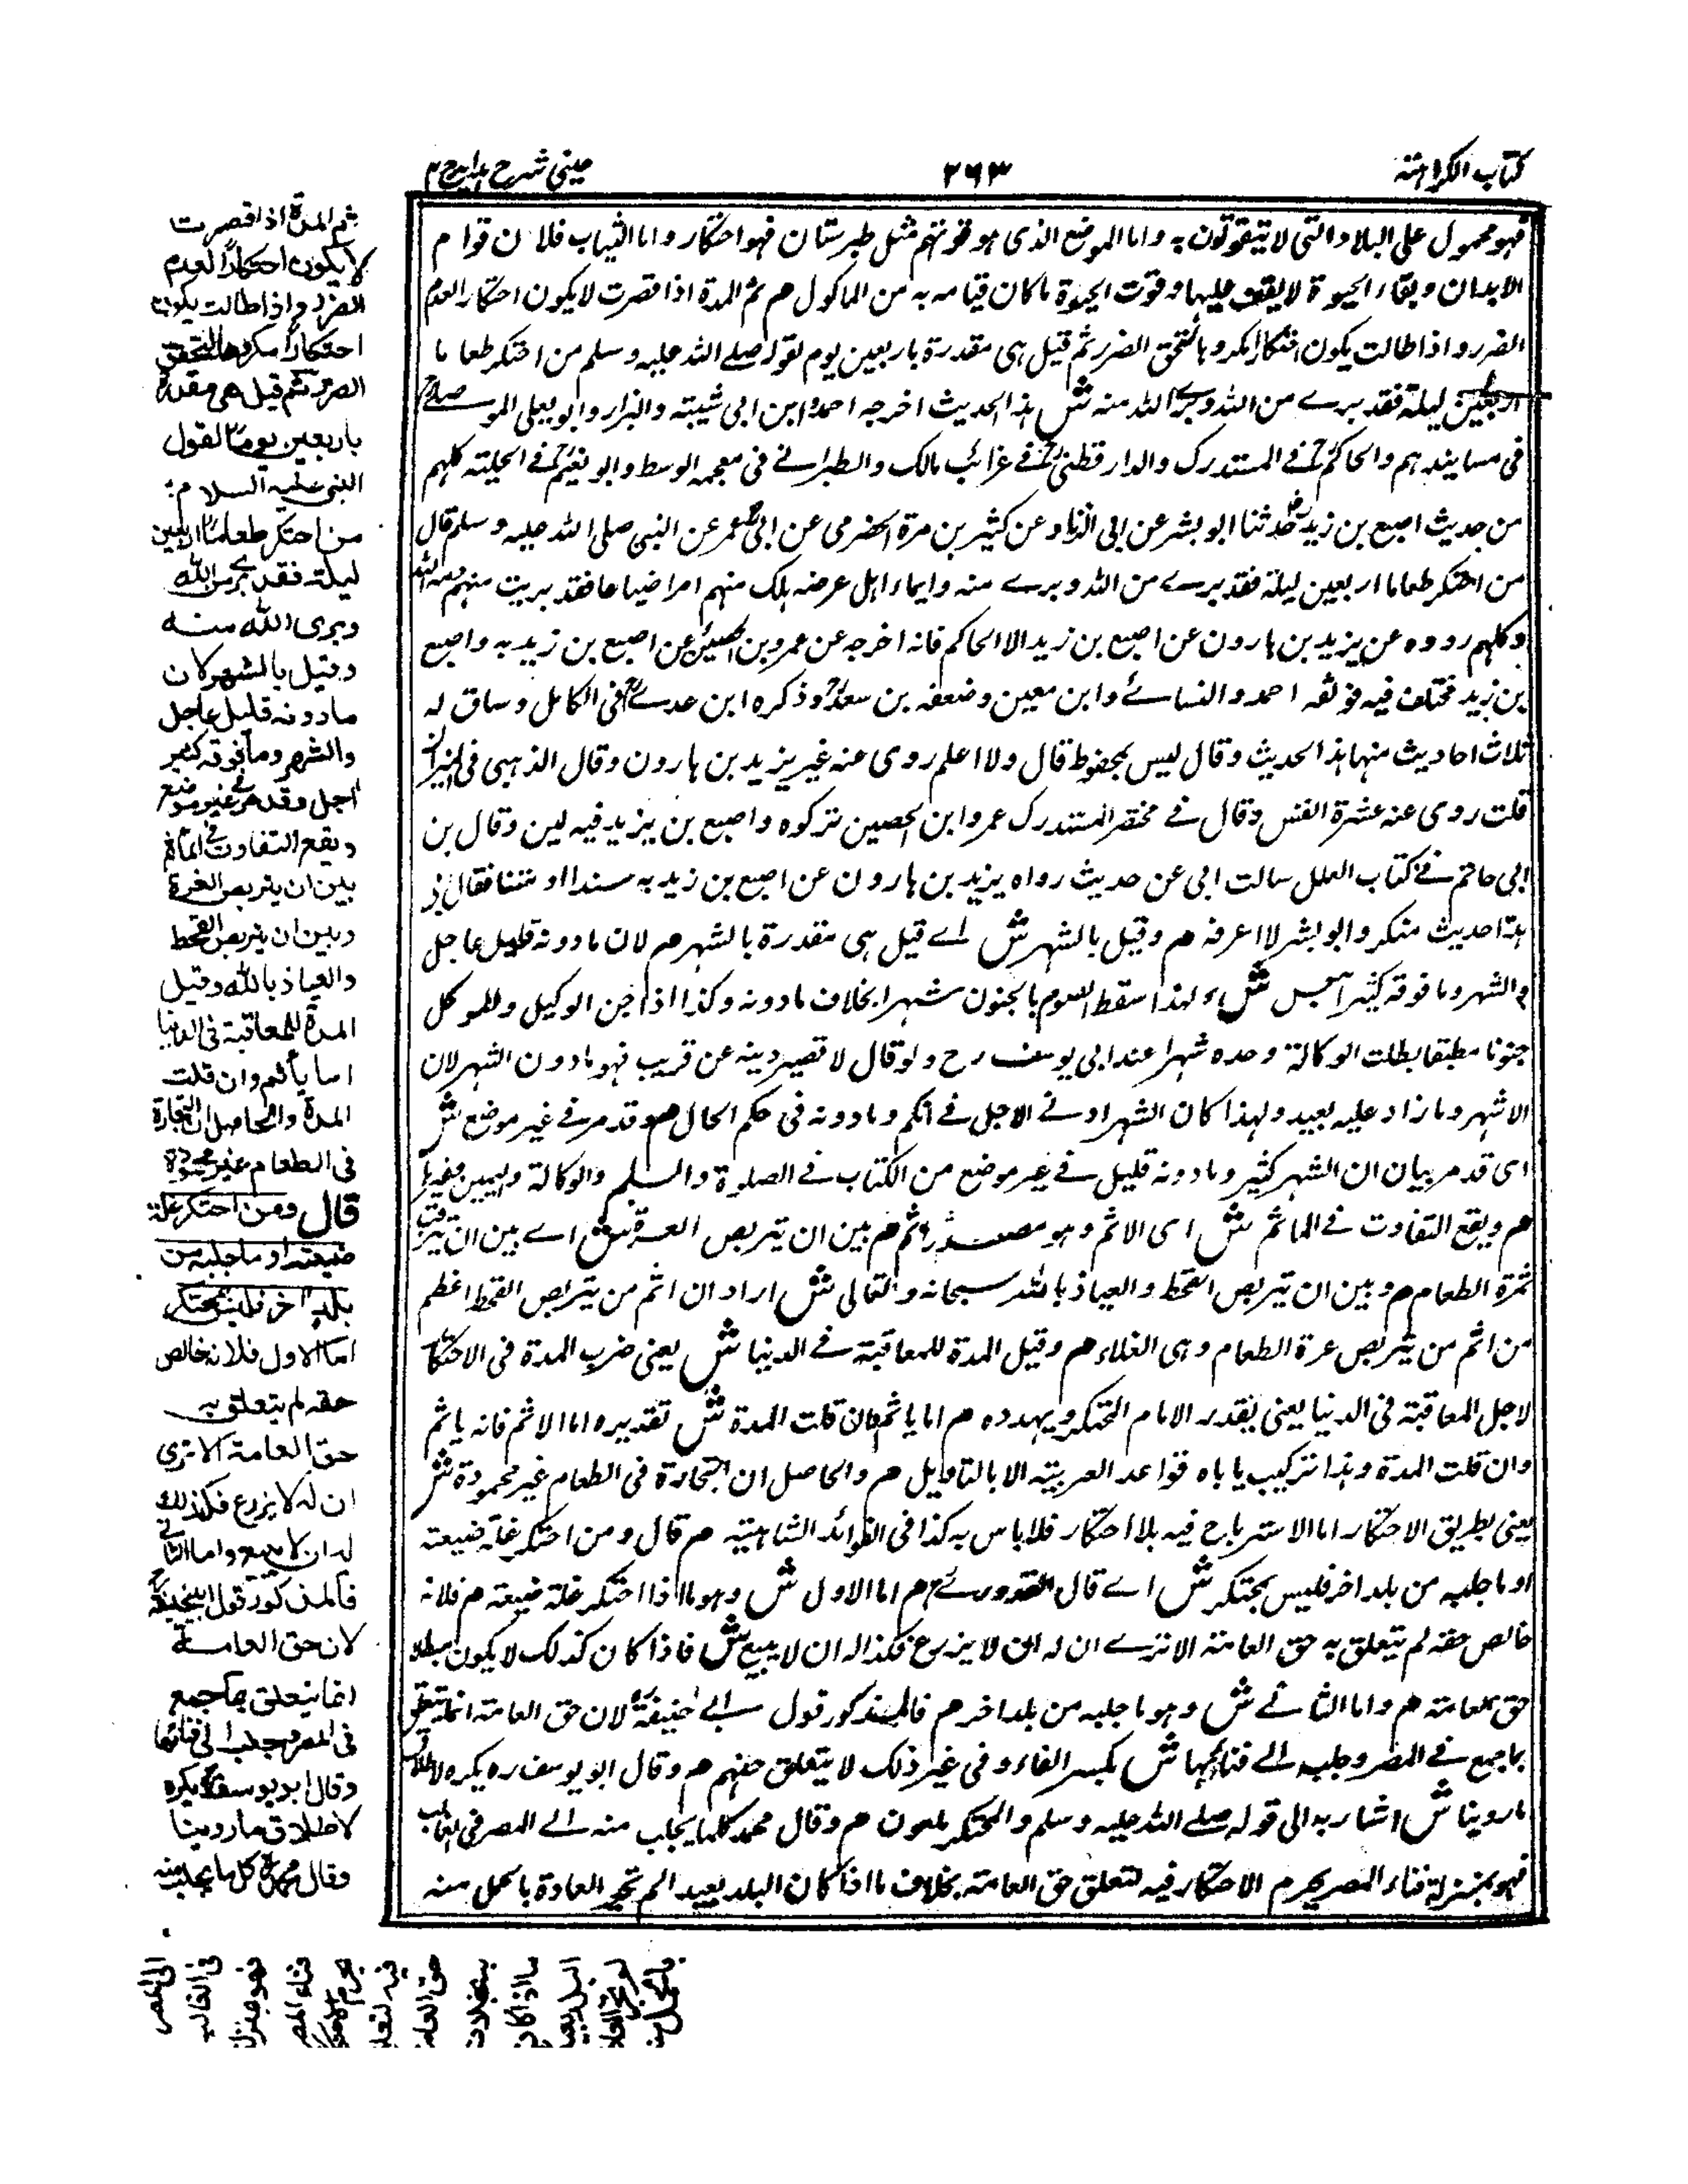 كتاب الكراهية
٢٦٣
عيني شرح هدايه ج ٣
فهو محمول على البلاد التي لا يتقوتون به واما الموضع الذى هو قوتهم مثل طبرستان فهو احتكار واما الثياب فلان قوام
الابدان وبقاء الحيوة لا يقف عليها وقوت الحيوة ما كان قيامه به من الماكول هم ثم المدة اذا قصرت لا يكون احتكار العدم
الضرر واذا طالت يكون احتكارا مكروها لتحقق الضرر ثم قيل هى مقدرة باربعين يوم لقوله صلے الله عليه وسلم من احتكر طعاما
اربعين ليلة فقد برے من الله وبرئ الله منه ش هذا الحديث اخرجه احمد وابن ابى شيبته والبزار وابو يعلى الموصلى
فى مسانيدهم والحاكم فے المستدرك والدارقطنى فے غرائب مالك والطبرانے فى معجمه الوسط وابو نعيم فے الحليته كلهم
من حديث اصبع بن زيد حدثنا ابو بشر عن ابى الزناد عن كثير بن مرة الحضرمى عن ابى عمر عن النبى صلى الله عليه وسلم قال
من احتكر طعاما اربعين ليلة فقد برے من الله وبرے منه وايماء اهل عرصه هلك منهم امرا ضياعا فقد بريت منهم ذمة الله
وكلهم رووه عن يزيد بن هارون عن اصبع بن زيد الا الحاكم فانه اخرجه عن عمرو بن الحصين عن اصبع بن زيد به واصبع
بن زيد مختلف فيه فوثقه احمد والنسائے وابن معين وضعفه بن سعد وذكره ابن عدے فى الكامل وساق له
ثلاث احاديث منها هذا الحديث وقال ليس بمحفوظ قال ولا اعلم روى عنه غير يزيد بن هارون وقال الذهبى فى الميزان
قلت روى عنه عشرة انفس وقال فے مختصر المستدرك عمرو ابن الحصين تركوه واصبع بن يزيد فيه لين وقال بن
ابى حاتم فے كتاب العلل سالت ابى عن حديث رواه يزيد بن هارون عن اصبع بن زيد به سندا او متنا فقال
هذا حديث منكر وابو بشر لا اعرفه هم وقيل بالشهر ش اے قيل هى مقدرة بالشهر هم لان ما دونه قليل عاجل
والشهر وما فوقه كثير آجل ش ولهذا سقط الصوم بالجنون شهرا بخلاف ما دونه وكذا اذا جن الوكيل وللموكل
جنونا مطبقا بطلت الوكالة وحده شهرا عند ابى يوسف رح ولو قال لا تصير دينه عن قريب فهو ما دون الشهر لان
الاشهر وما زاد عليه بعيد ولهذا كان الشهر ادنے الاجل فے السلم وما دونه فى حكم الحال هم وقد مر فے غير موضع ش
اى قد مر بيان ان الشهر كثير وما دونه قليل فے غير موضع من الكتاب فے الصلوة والسلم والوكالة واليمين وغيرها
هم ويقع التفاوت فے الماثم ش اى الاثم وهو مصدر اثم هم بين ان يتربص العسرة ش اے بين ان يترقب
ثمرة الطعام هم وبين ان يتربص القحط والعياذ بالله سبحانه وتعالى ش اراد ان اثم من يتربص القحط اعظم
من اثم من يتربص عزة الطعام وهى الغلاء هم وقيل المدة للمعاقبة فے الدنيا ش يعنى ضرب المدة فى الاحتكار
لاجل المعاقبة فى الدنيا يعنى بقدر الامام المحتكر ويهدده هم اما ياثم وان قلت المدة ش تقديره اما الاثم فانه ياثم
وان قلت المدة وهذا تركيب ياباه قواعد العربيته الا بالتاويل هم والحاصل ان التجارة فى الطعام غير محمودة ش
يعنى بطريق الاحتكار اما الاسترباح فيه بلا احتكار فلا باس به كذا فى الفوائد الشاهيته هم قال ومن احتكر غلة ضيعته
او ما جلبه من بلد اخر فليس بمحتكر ش اے قال القدورے هم اما الاول ش وهو ما اذا احتكر غلة ضيعته هم فلانه
خالص حقه لم يتعلق به حق العامة الا ترے ان له ان لا يزرع فكذا له ان لا يبيع ش فاذا كان كذلك لا يكون مبطلا
حق العامته هم واما الثانے ش وهو ما جلبه من بلد اخر هم فالمذكور قول ابے حنيفة لان حق العامته انما يتعلق
بما جمع فے المصر وجلب الے فنائها ش بكسر الفاء وفى غير ذلك لا يتعلق حقهم هم وقال ابو يوسف ره يكره لاطلاق
ما روينا ش اشار به الى قوله صلے الله عليه وسلم والمحتكر ملعون هم وقال محمد كلما يجلب منه الے المصر فى الغالب
فهو بمنزلة فناء المصر يحرم الاحتكار فيه لتعلق حق العامته بخلاف ما اذا كان البلد بعيد الم تجر العادة بالحمل منه
ثم المدة اذا قصرت
لا يكون احتكارًا لعدم
الضرر واذا طالت يكون
احتكارًا مكروها لتحقق
الضرر ثم قيل هى مقدرة
باربعين يومًا لقول
النبى عليه السلام:
من احتكر طعامًا اربعين
ليلة فقد برئ من الله
وبرى الله منه
وقيل بالشهر لان
ما دونه قليل عاجل
والشهر وما فوقه كثير
آجل وقد مر فى غير موضع
ويقع التفاوت فى المأثم
بين ان يتربص العزة
وبين ان يتربص القحط
والعياذ بالله وقيل
المدة للمعاقبة فى الدنيا
اما يأثم وان قلت
المدة والحاصل ان التجارة
فى الطعام غير محمودة
قال ومن احتكر غلة
ضيعته او ما جلبه من
بلد آخر فليس بمحتكر
اما الاول فلانه خالص
حقه لم يتعلق به
حق العامة الا ترى
ان له لا يزرع فكذلك
له ان لا يبيع واما الثانى
فالمذكور قول ابيحنيفة
لان حق العامة
انما يتعلق بما جمع
فى المصر وجلب الى فنائها
وقال ابو يوسف يكره
لاطلاق ما روينا
وقال محمد كل ما يجلب منه
الى المصر
فى الغالب
فهو بمنزلة
فناء المصر
يحرم الاحتكار
فيه لتعلق
حق العامة
بخلاف
ما اذا كان
البلد بعيدا
لم تجر العادة
بالحمل منه